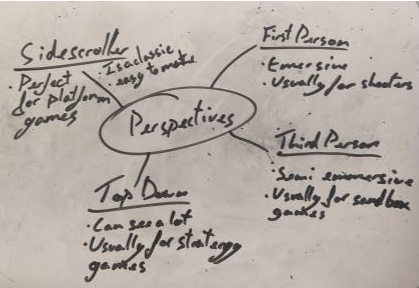 Sidescroller
· Is a classic
easy to make
· Perfect
for platform
games
First Person
· Emersive
· Usually for shooters
Perspectives
Third Person
· Semi emmersive
· Usually for sandbox
games
Top Down
· Can see a lot
· Usually for stratergy
games